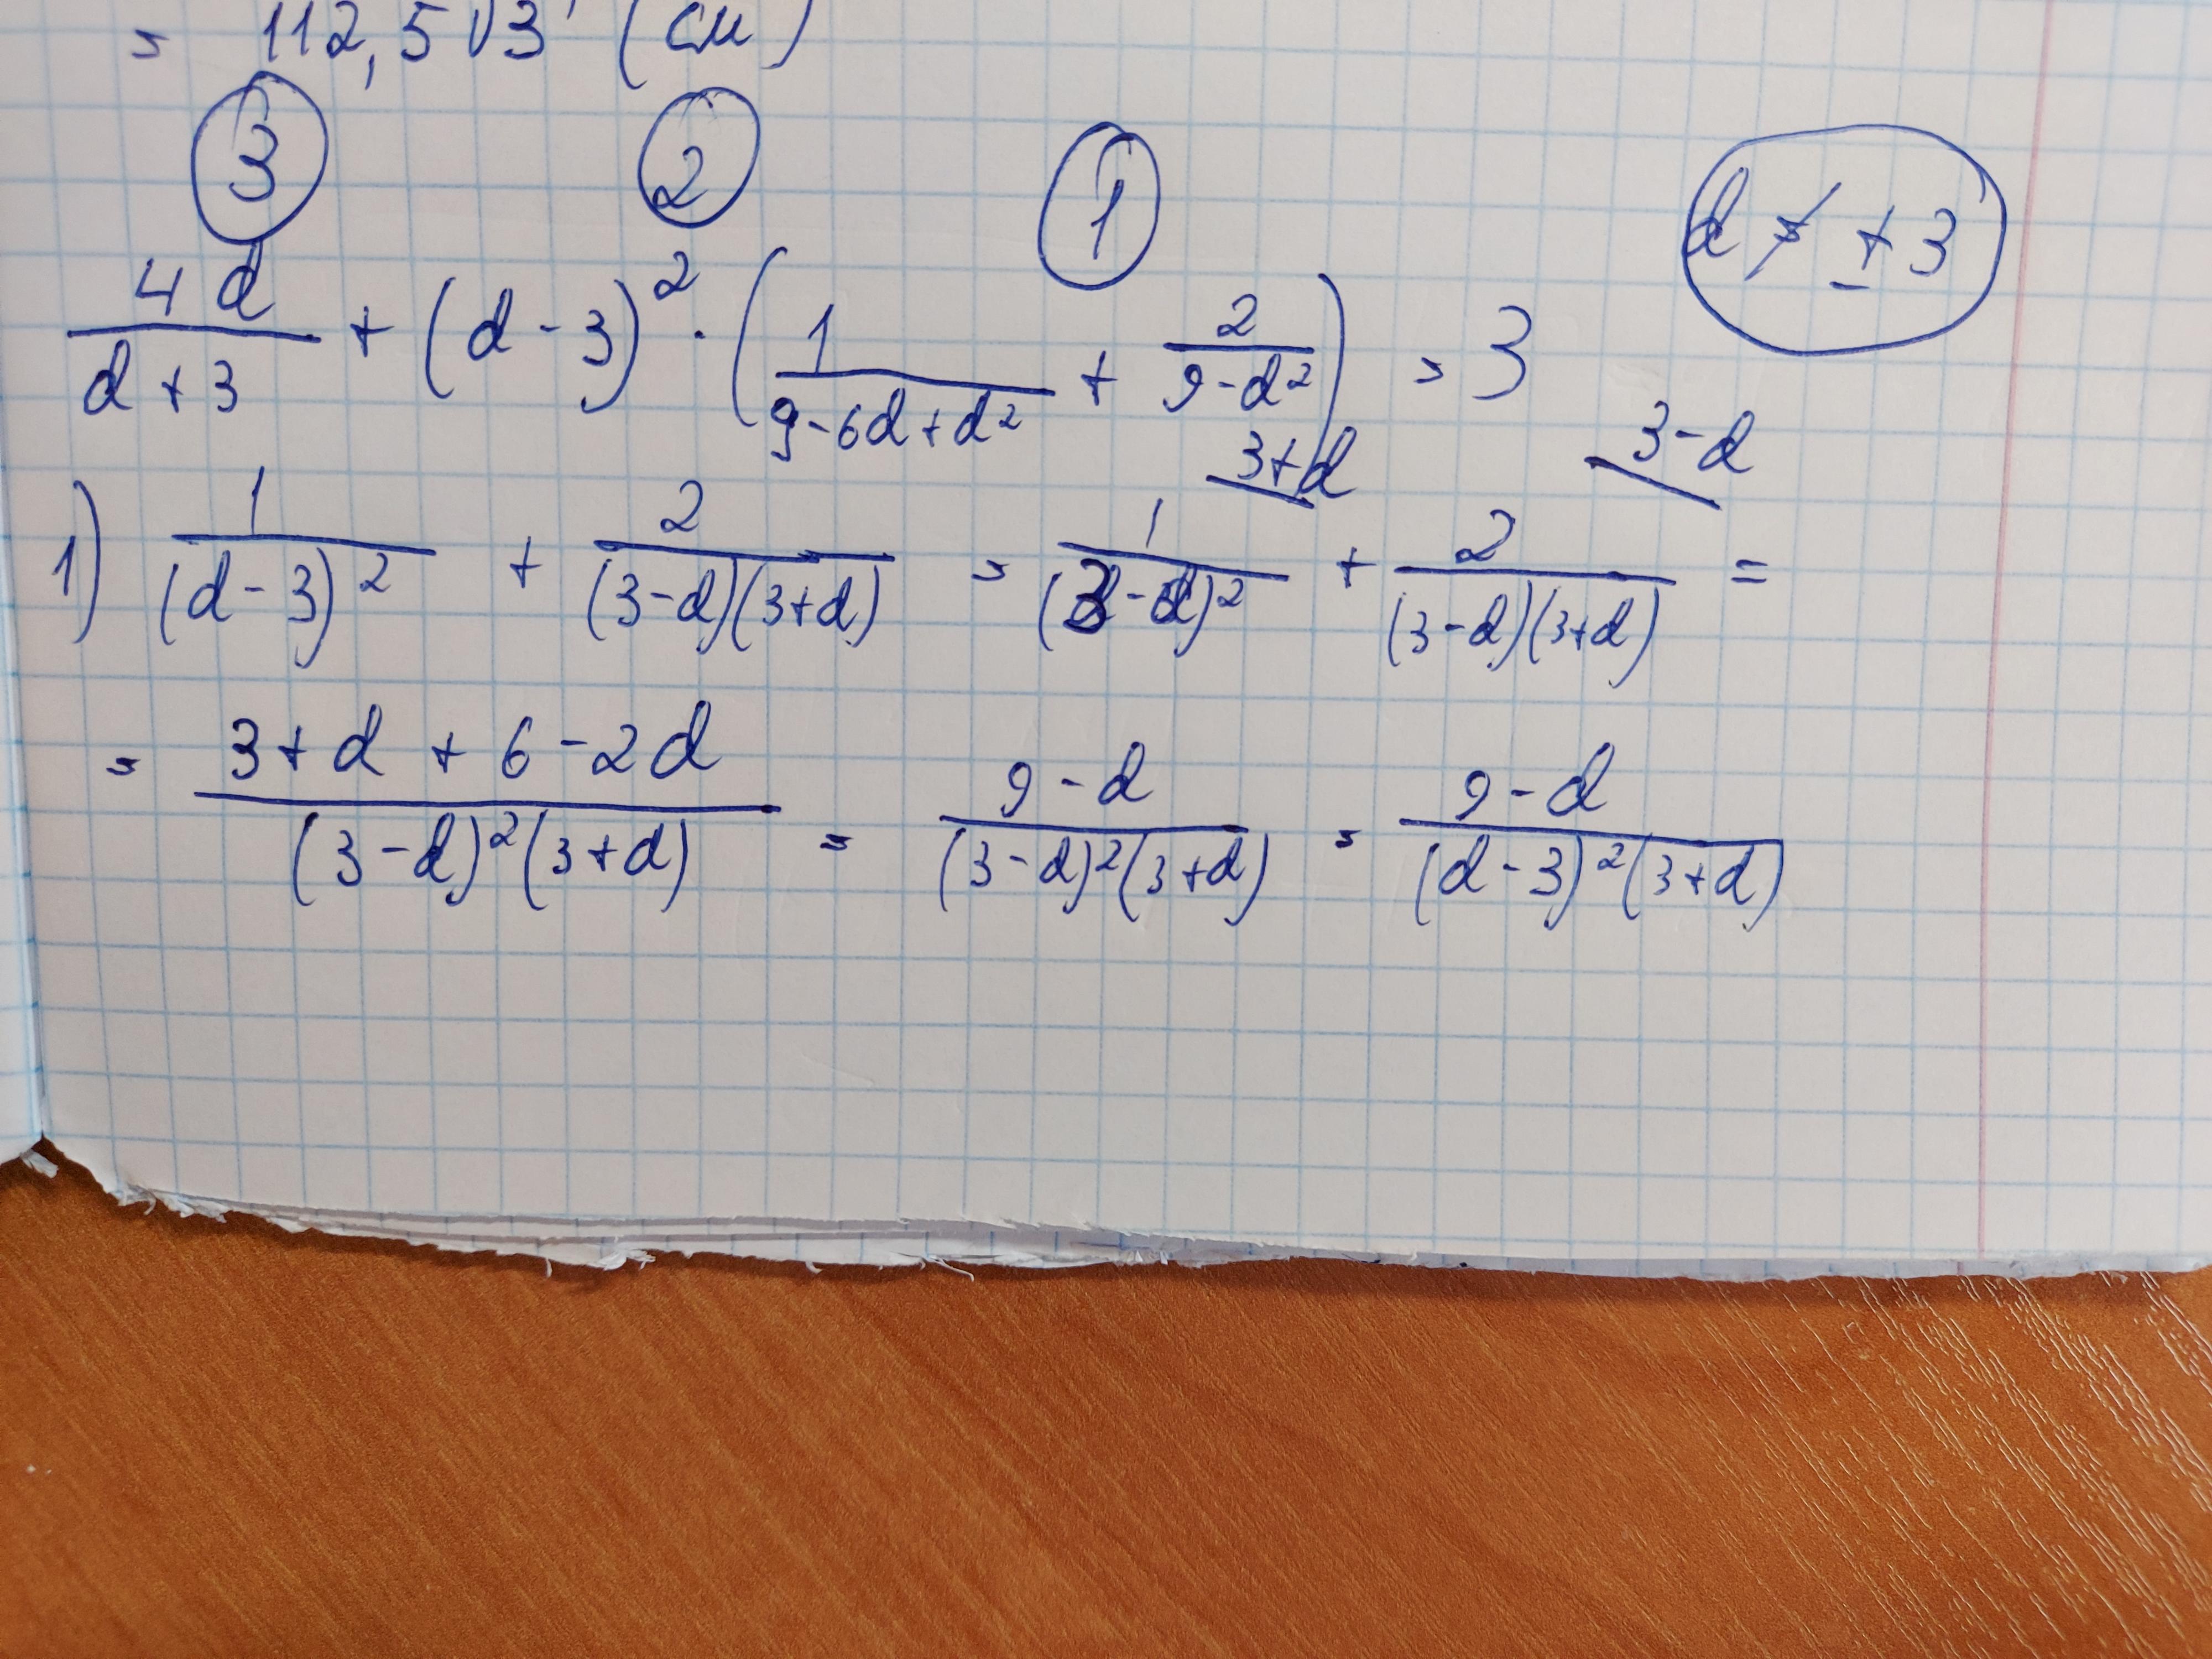 = 112,5√3 (см)
③ ② ①
4d/(d+3) + (d-3)² · (1/(9-6d+d²) + 2/(9-d²)) = 3 d ≠ ±3
3+d 3-d
1) 1/(d-3)² + 2/((3-d)(3+d)) = 1/(3-d)² + 2/((3-d)(3+d)) =
= (3+d+6-2d)/((3-d)²(3+d)) = (9-d)/((3-d)²(3+d)) = (9-d)/((d-3)²(3+d))